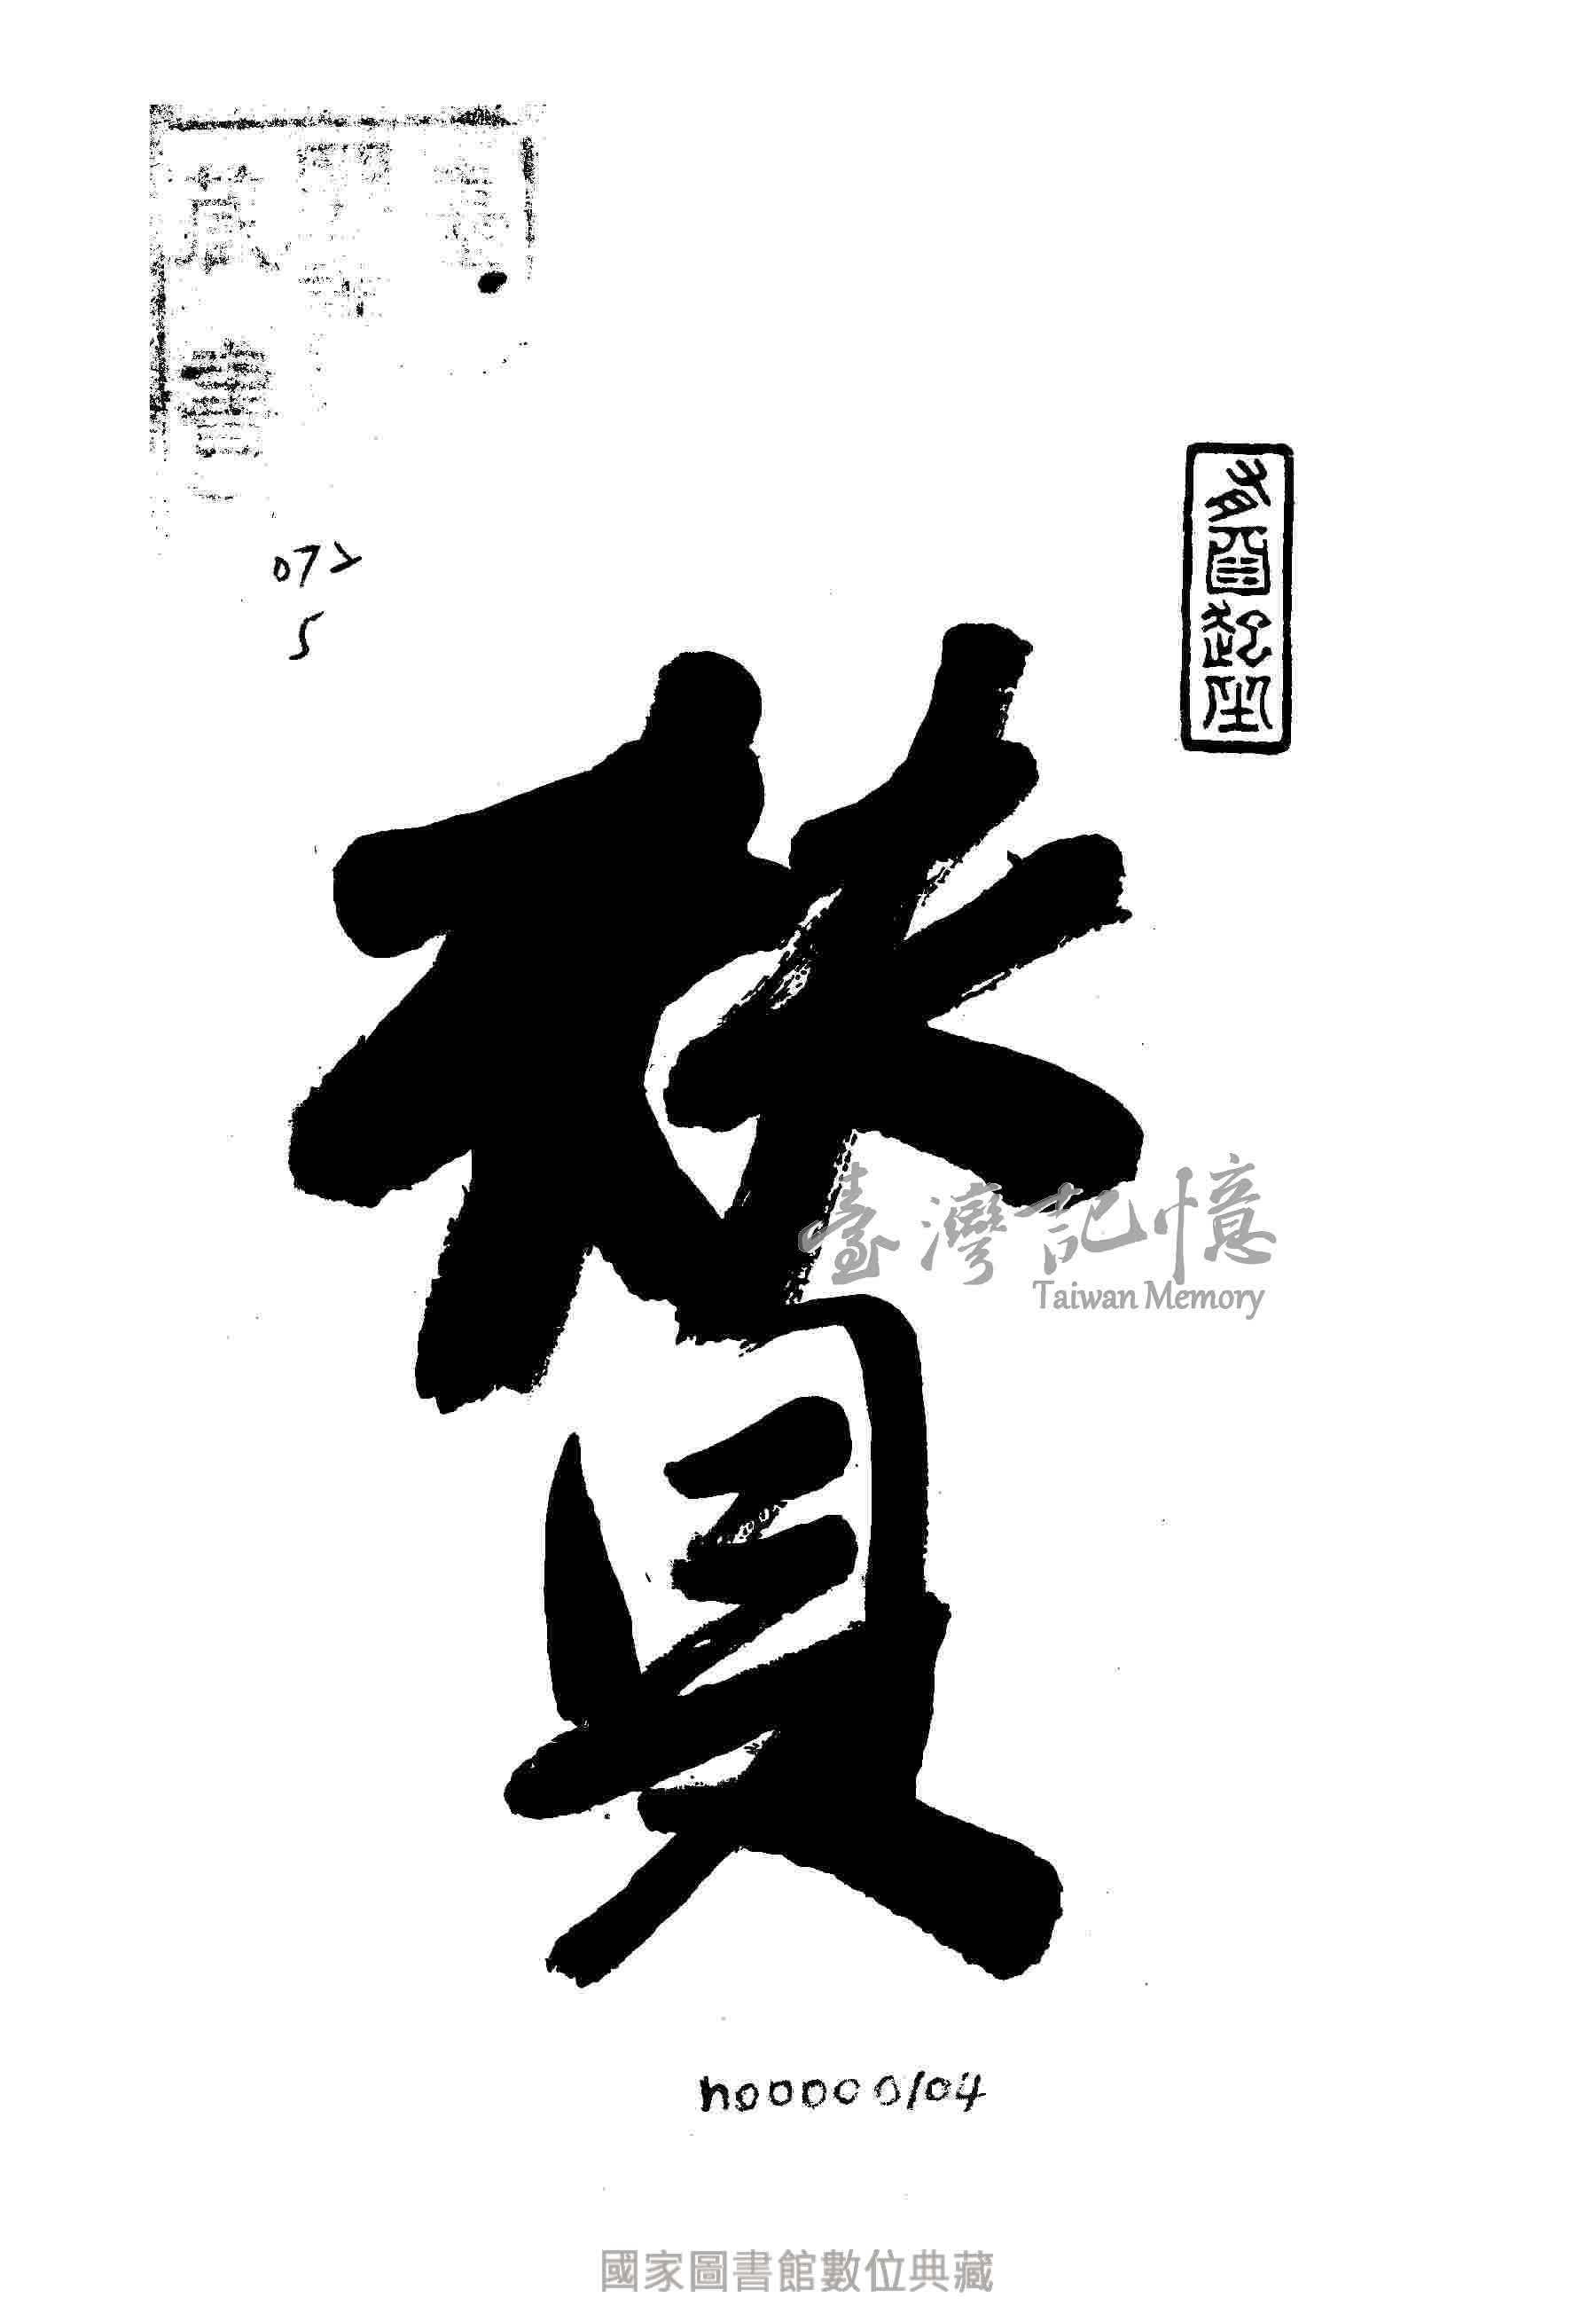 藏書
072
5
賛
臺灣記憶
Taiwan Memory
h00000104
國家圖書館數位典藏